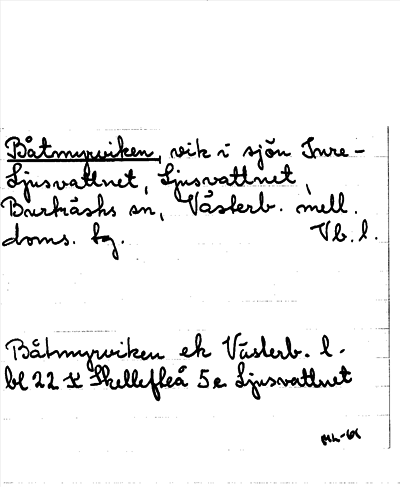 Båtmyrviken, vik i sjön Inre-
Ljusvattnet, Ljusvattnet,
Burträsks sn, Västerb. mell.
doms. tg. Vb. l.
Båtmyrviken ek Västerb. l.
bl 22 K Skellefteå 5e Ljusvattnet